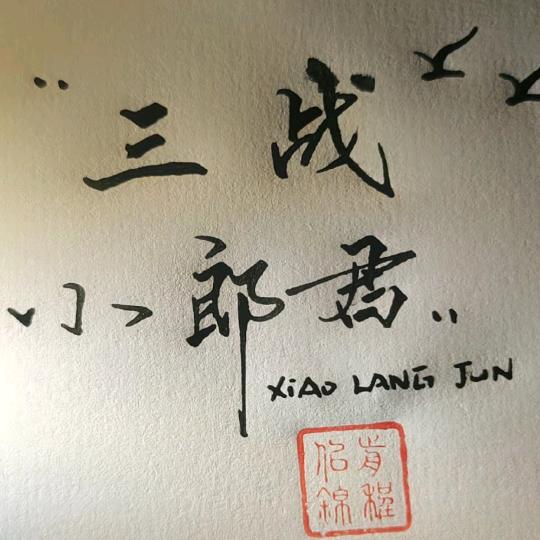 "三战
小郎君"
XiAO LANG JUN